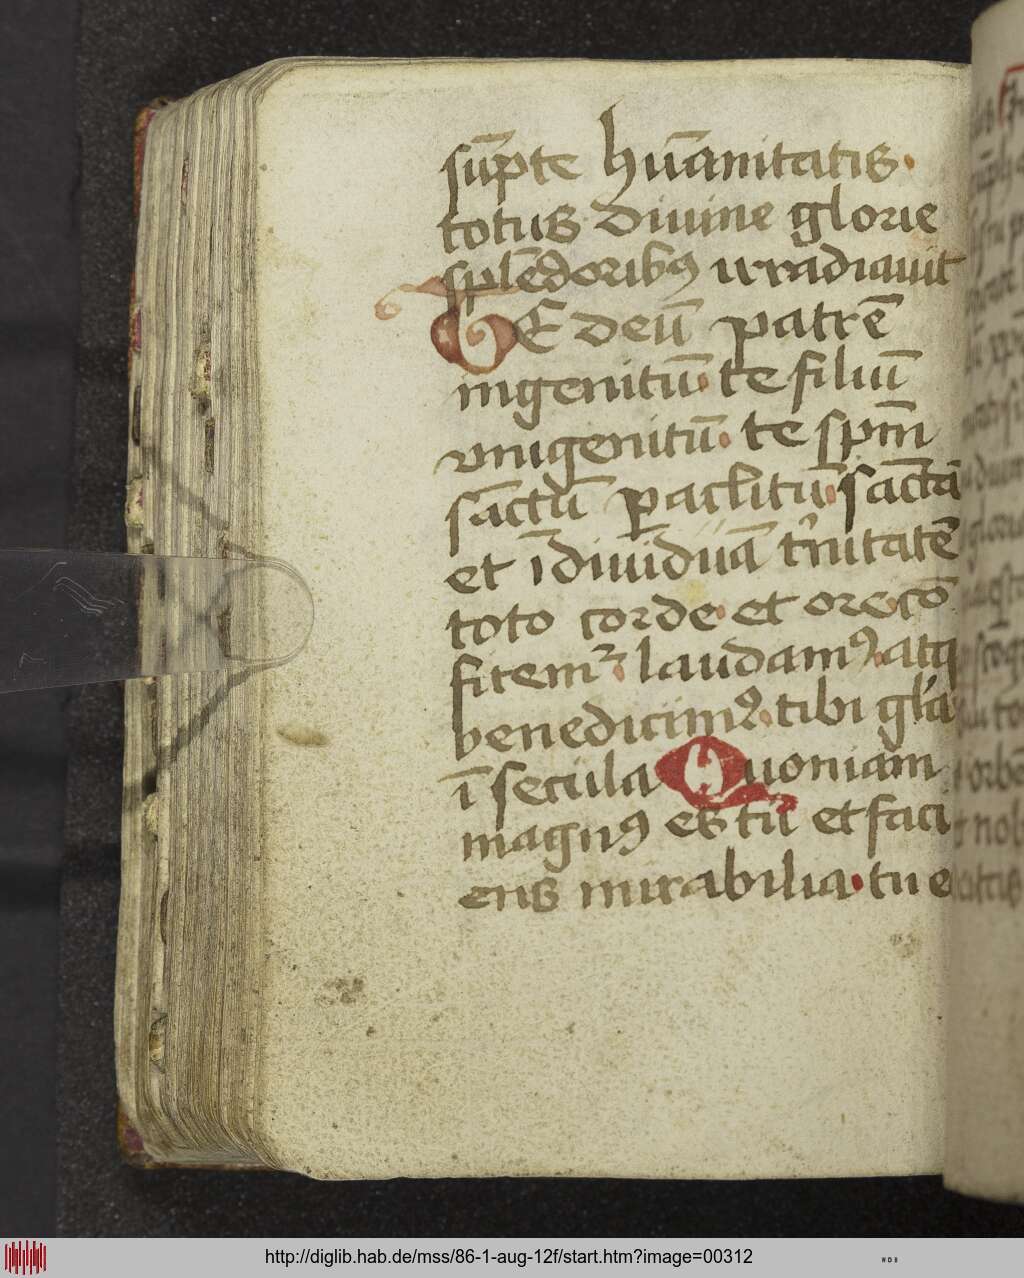 sūpte hūanitatis.
totus diuine glorie
splēdoribꝰ irradiauit
TE deū patrē
ingenitū. te filiū
vnigenitū. te spm̄
sāctū paclitū. sāctā
et īdiuiduā tͥnitatē
toto corde. et ore. cō
fitemᷣ. laudamꝰ. atq
benedicimꝰ. tibi glā
ī secula Quoniam
magnꝰ es tu et faci
ens mirabilia. tu e
http://diglib.hab.de/mss/86-1-aug-12f/start.htm?image=00312